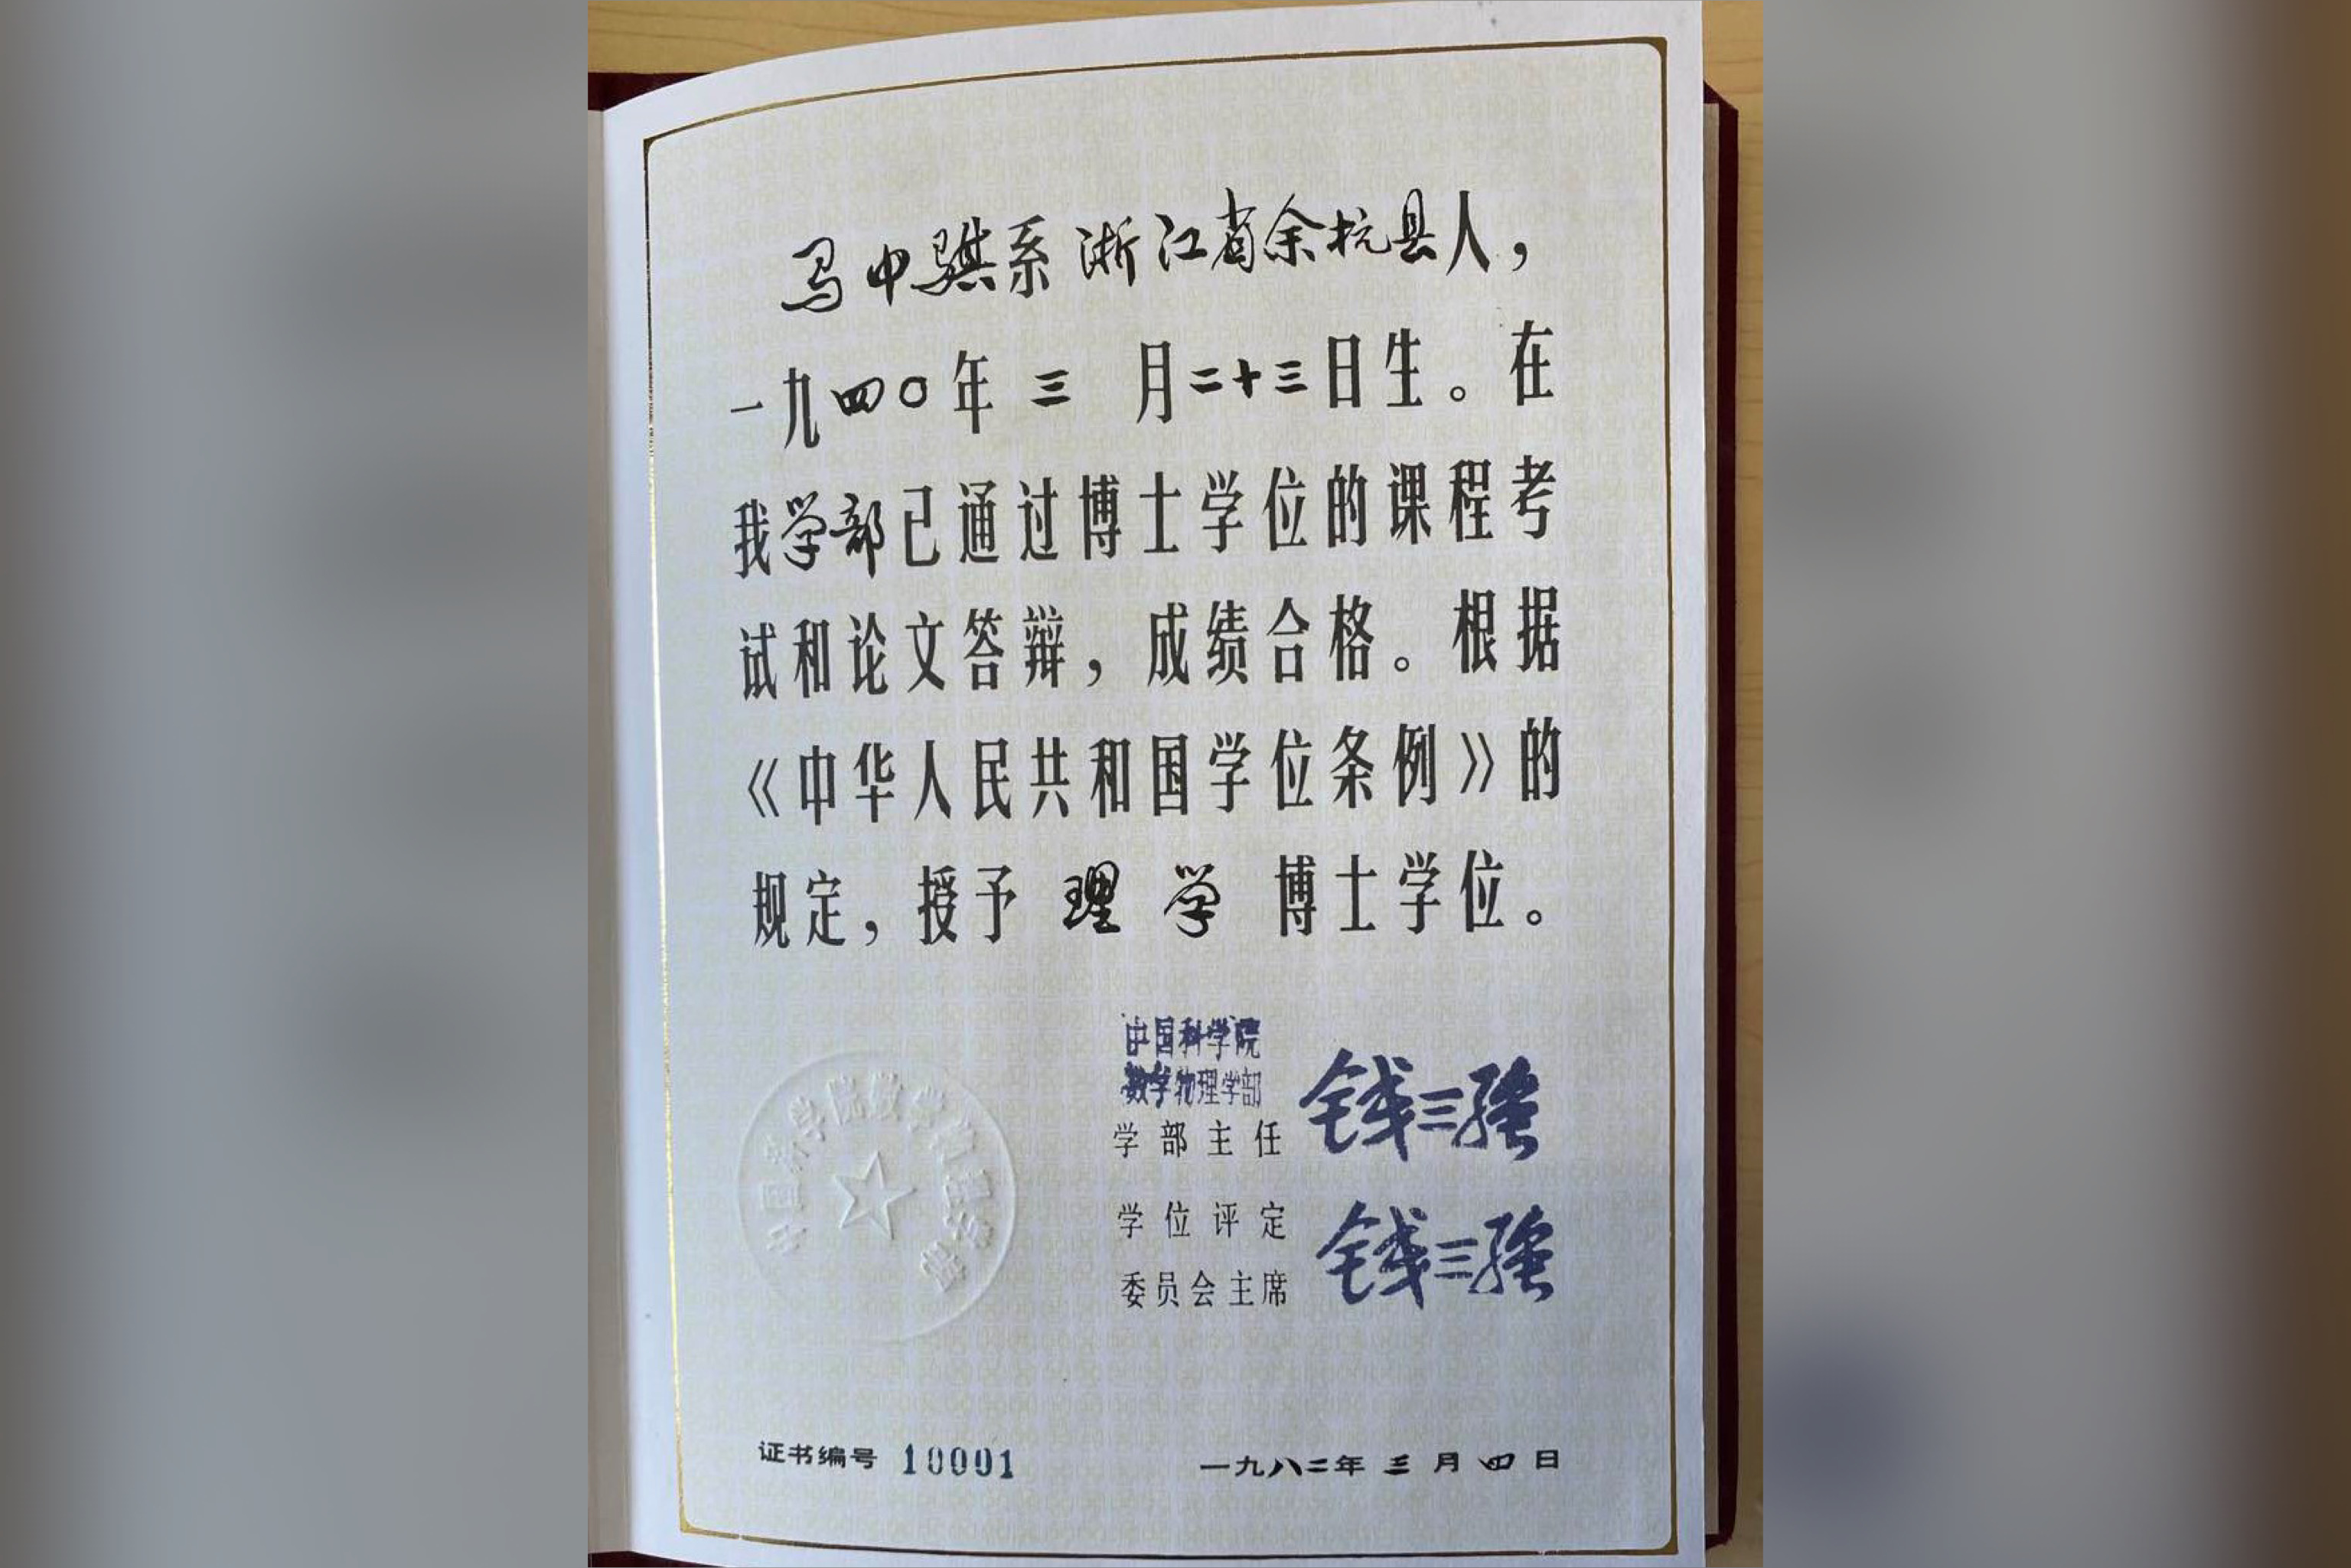 马中骐系浙江省余杭县人，
一九四〇年三月二十三日生。在
我学部已通过博士学位的课程考
试和论文答辩，成绩合格。根据
《中华人民共和国学位条例》的
规定，授予理学博士学位。
中国科学院
数学物理学部
学部主任 钱三强
学位评定
委员会主席 钱三强
中国科学院数学物理学部
证书编号 10001
一九八二年三月四日